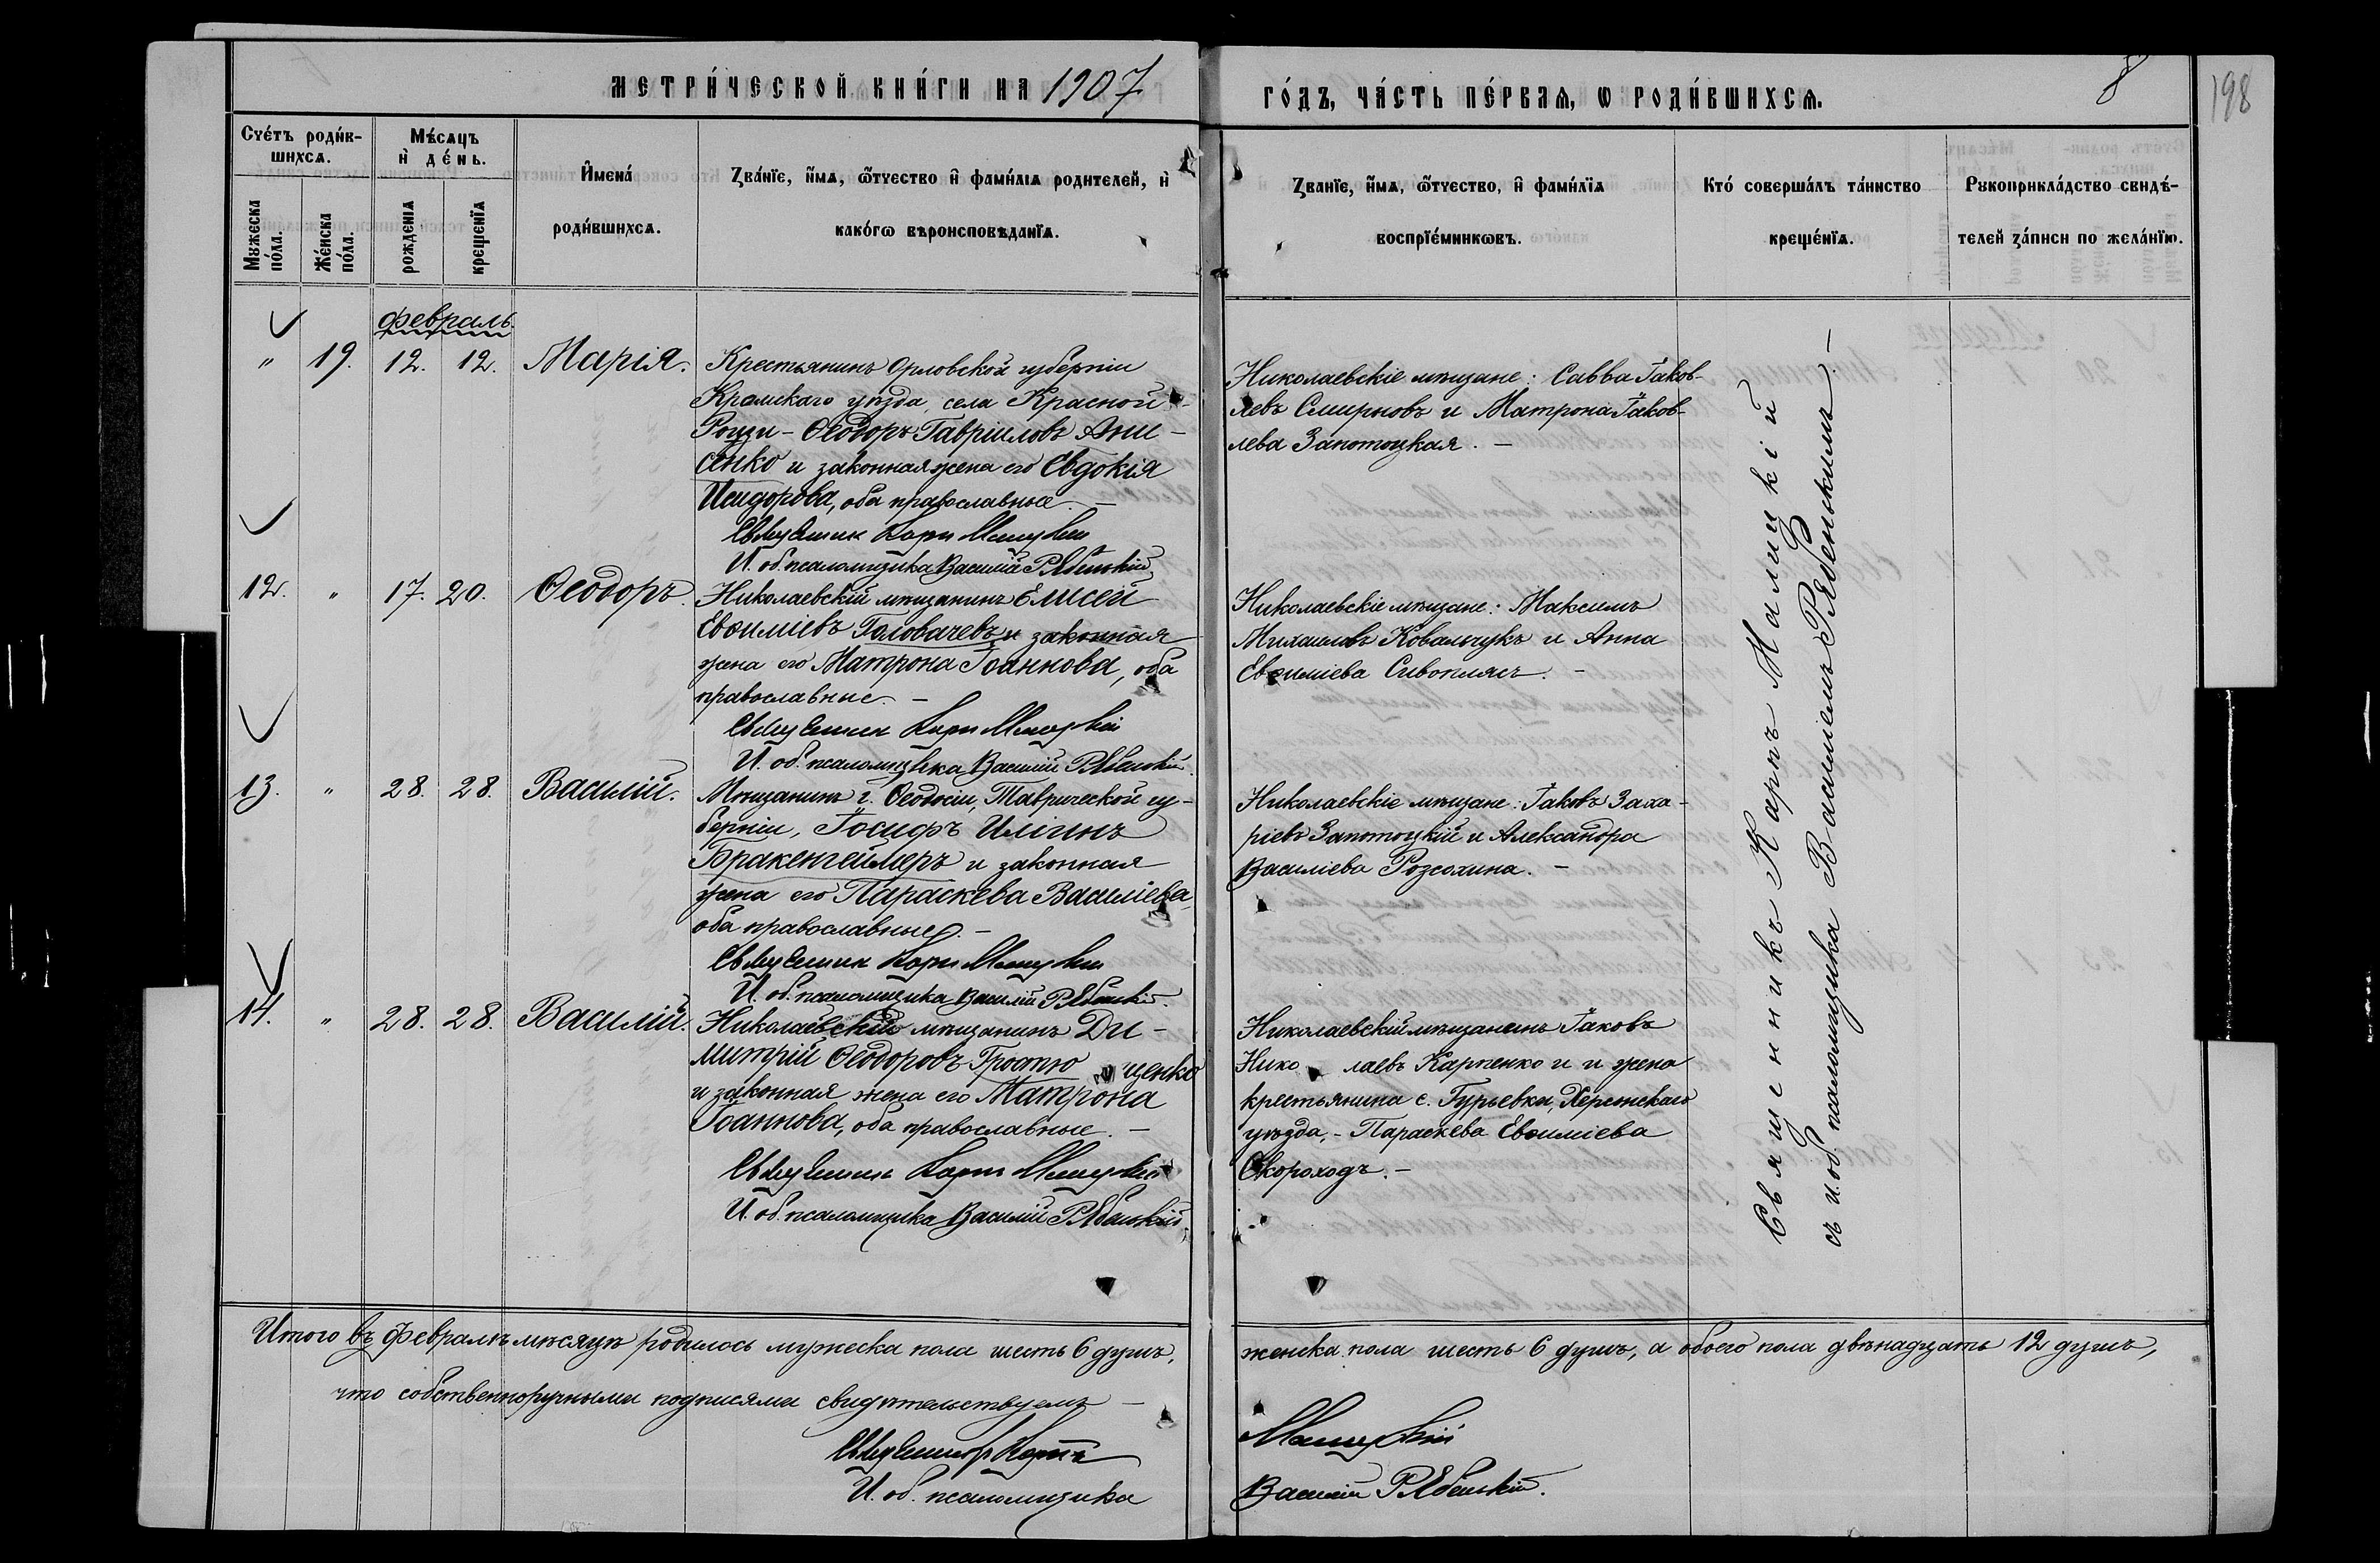 МЕТРИ́ЧЕСКОЙ КНИ́ГИ НА 1907
ГО́ДЪ, ЧА́СТЬ ПЕ́РВАѦ, Ѡ РОДИ́ВШИХСѦ.
8
198
Сче́тъ роди́в-
шихсѧ.
Мꙋжеска
по́ла.
Же́нска
по́ла.
Мѣ́сѧцъ
и҆ де́нь.
рожденїѧ
крещенїѧ
И҆мена́
роди́вшихсѧ.
Зва́нїе, и҆́мѧ, ѻ҆́тчество и҆ фами́лїѧ родителей, и҆
како́гѡ вѣроисповѣданїѧ.
Зва́нїе, и҆́мѧ, ѻ҆́тчество, и҆ фами́лїѧ
воспрїе́мникѡвъ.
Кто́ соверша́лъ та́инство
креще́нїѧ.
Рꙋкоприкла́дство свидѣ́-
телей за́писи по жела́нїю.
февраль.
" 19. 12. 12. Марія.
Крестьянинъ Орловской губерніи
Кромскаго уѣзда, села Красной
Рощи - Ѳеодоръ Гавріиловъ Ани-
сенко и законная жена его Евдокія
Исидорова, оба православные. —
Священник Карп Малицкий
И. об. псаломщика Василій Рябенькій
Николаевскіе мѣщане: Савва Іаков-
левъ Смирновъ и Матрона Іаков-
лева Запотоцкая. —
12. " 17. 20. Ѳеодоръ.
Николаевскій мѣщанинъ Елисей
Евѳиміевъ Головачевъ и законная
жена его Матрона Іоаннова, оба
православные. —
Священник Карп Малицкій
И. об. псаломщика Василій Рябенькій.
Николаевскіе мѣщане: Максимъ
Михаиловъ Ковальчукъ и Анна
Евѳиміева Сивопляс. —
13. " 28. 28. Василій.
Мѣщанинъ г. Ѳеодосіи, Таврической гу-
берніи, Іосифъ Иліинъ
Бракенгеймеръ и законная
жена его Параскева Василіева,
оба православные. —
Священник Карп Малицкий
И. об. псаломщика Василій Рябенькій.
Николаевскіе мѣщане: Іаковъ Заха-
ріевъ Запотоцкій и Александра
Василіева Розсохина. —
14. " 28. 28. Василій.
Николаевскій мѣщанинъ Ди-
митрій Ѳеодоровъ
и законная жена его Матрона
Іоаннова, оба православные. —
Священник Карп Малицкий
И. об. псаломщика Василій Рябенькій.
Николаевскій мѣщанинъ Іаковъ
Нико лаевъ Карпенко и и жена
крестьянина с. Гурьевки, Херсонскаго
уѣзда, - Параскева Евѳиміева
Скороходъ. —
Священникъ Карпъ Малицкій
съ и. об. псаломщика Василіемъ Рябенькимъ —
Итого въ февралѣ мѣсяцѣ родилось мужеска пола шесть 6 душъ,
женска пола шесть 6 душъ, а обоего пола двѣнадцать 12 душъ,
что собственноручными подписями свидѣтельствуемъ —
Священник Карпъ
Малицкий
И. об. псаломщика
Василій Рябенькій.